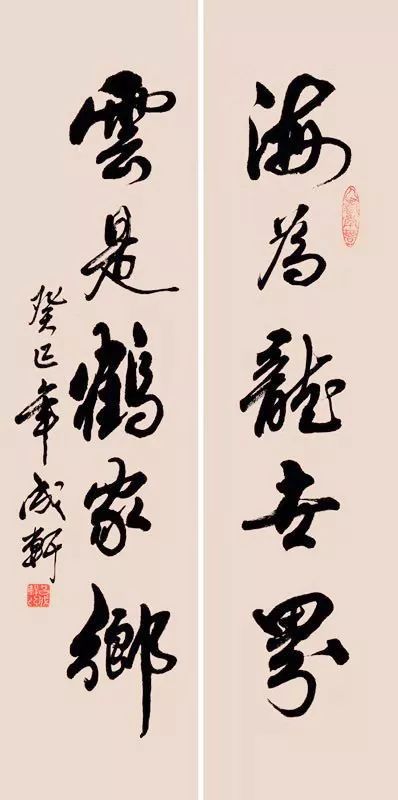 海為龍世界
雲是鶴家鄉
癸巳年成軒